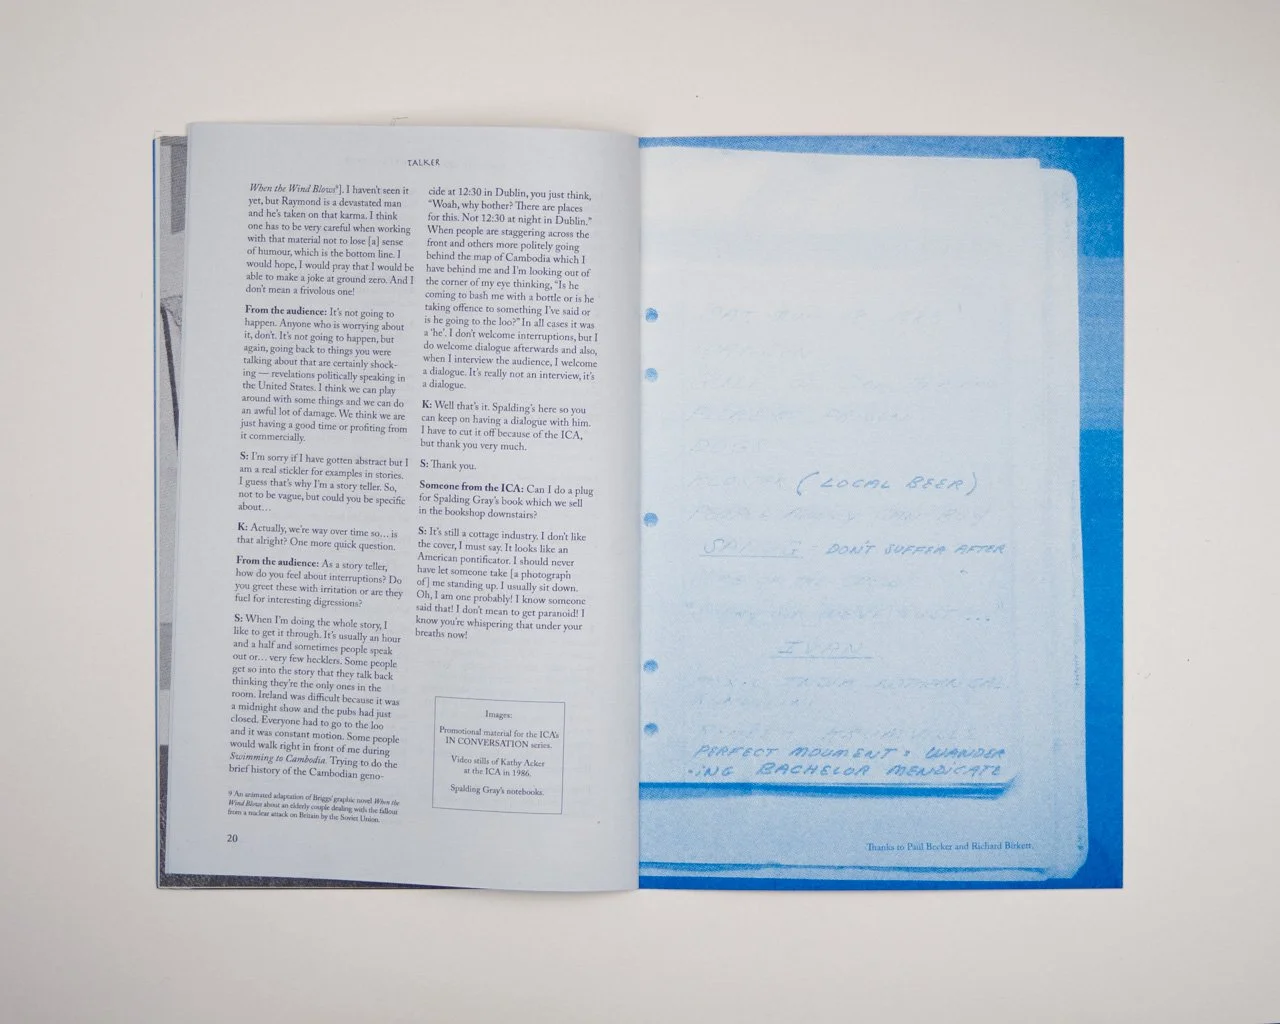 TALKER
When the Wind Blows⁹]. I haven't seen it
yet, but Raymond is a devastated man
and he's taken on that karma. I think
one has to be very careful when working
with that material not to lose [a] sense
of humour, which is the bottom line. I
would hope, I would pray that I would be
able to make a joke at ground zero. And I
don't mean a frivolous one!
From the audience: It's not going to
happen. Anyone who is worrying about
it, don't. It's not going to happen, but
again, going back to things you were
talking about that are certainly shock-
ing — revelations politically speaking in
the United States. I think we can play
around with some things and we can do
an awful lot of damage. We think we are
just having a good time or profiting from
it commercially.
S: I'm sorry if I have gotten abstract but I
am a real stickler for examples in stories.
I guess that's why I'm a story teller. So,
not to be vague, but could you be specific
about…
K: Actually, we're way over time so… is
that alright? One more quick question.
From the audience: As a story teller,
how do you feel about interruptions? Do
you greet these with irritation or are they
fuel for interesting digressions?
S: When I'm doing the whole story, I
like to get it through. It's usually an hour
and a half and sometimes people speak
out or… very few hecklers. Some people
get so into the story that they talk back
thinking they're the only ones in the
room. Ireland was difficult because it was
a midnight show and the pubs had just
closed. Everyone had to go to the loo
and it was constant motion. Some people
would walk right in front of me during
Swimming to Cambodia. Trying to do the
brief history of the Cambodian geno-
9 An animated adaptation of Briggs' graphic novel When the
Wind Blows about an elderly couple dealing with the fallout
from a nuclear attack on Britain by the Soviet Union.
20
cide at 12:30 in Dublin, you just think,
"Woah, why bother? There are places
for this. Not 12:30 at night in Dublin."
When people are staggering across the
front and others more politely going
behind the map of Cambodia which I
have behind me and I'm looking out of
the corner of my eye thinking, "Is he
coming to bash me with a bottle or is he
taking offence to something I've said or
is he going to the loo?" In all cases it was
a 'he'. I don't welcome interruptions, but I
do welcome dialogue afterwards and also,
when I interview the audience, I welcome
a dialogue. It's really not an interview, it's
a dialogue.
K: Well that's it. Spalding's here so you
can keep on having a dialogue with him.
I have to cut it off because of the ICA,
but thank you very much.
S: Thank you.
Someone from the ICA: Can I do a plug
for Spalding Gray's book which we sell
in the bookshop downstairs?
S: It's still a cottage industry. I don't like
the cover, I must say. It looks like an
American pontificator. I should never
have let someone take [a photograph
of] me standing up. I usually sit down.
Oh, I am one probably! I know someone
said that! I don't mean to get paranoid! I
know you're whispering that under your
breaths now!
Images:
Promotional material for the ICA's
IN CONVERSATION series.
Video stills of Kathy Acker
at the ICA in 1986.
Spalding Gray's notebooks.
(LOCAL BEER)
DON'T SUFFER AFTER
IVAN
PERFECT MOUMENT: WANDER
ING BACHELOR MENDICATE
Thanks to Paul Becker and Richard Birkett.